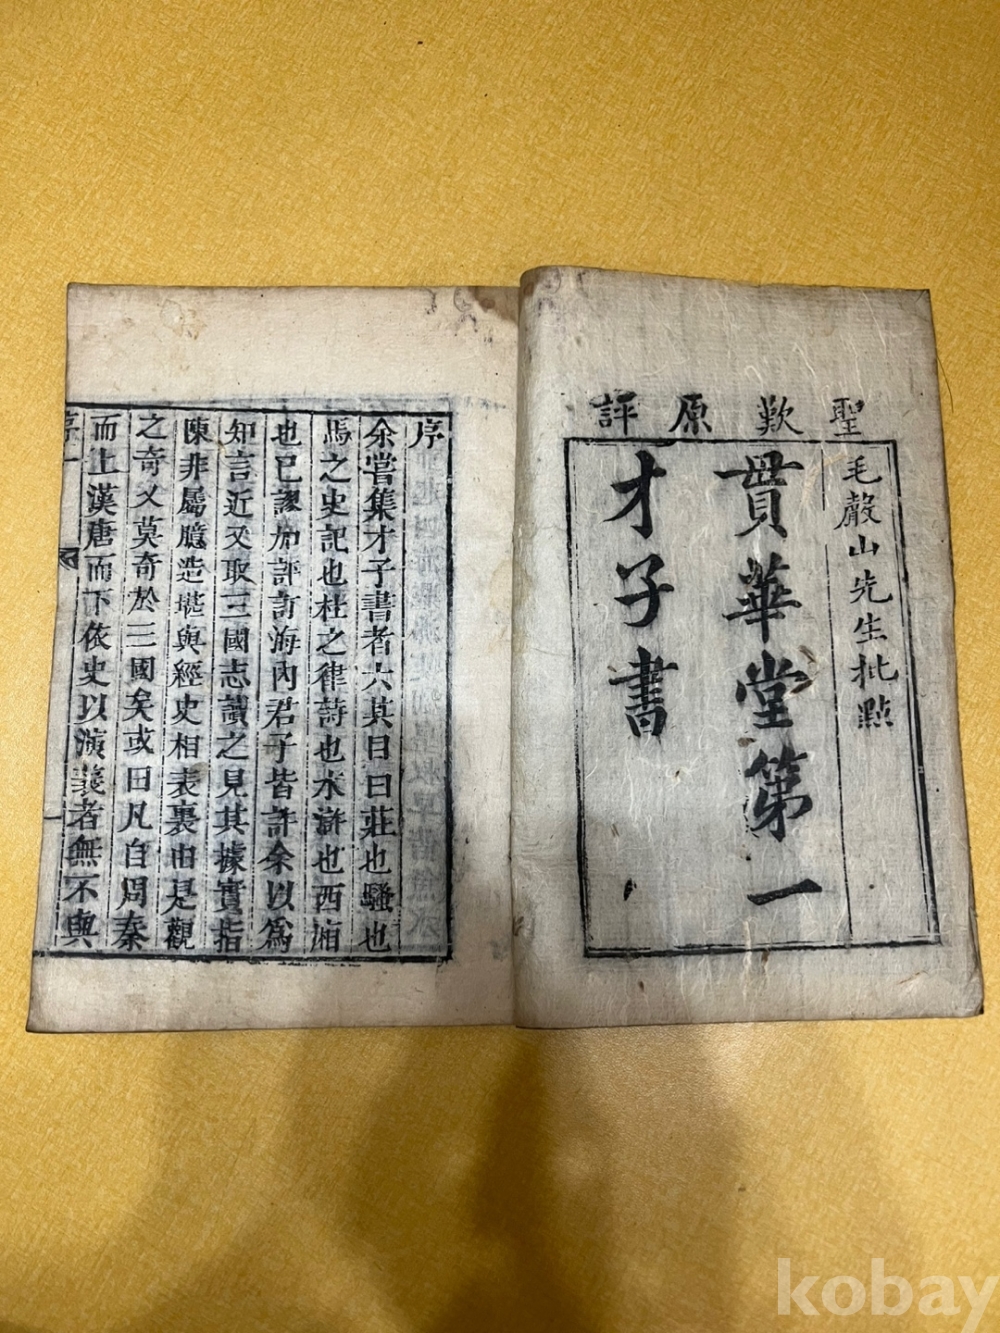 聖歎原評
毛聲山先生批點
貫華堂第一
才子書
序
余嘗集才子書者六其目曰莊也騷也
馬之史記也杜之律詩也水滸也西廂
也已謬加評訂海內君子皆許余以爲
知言近又取三國志讀之見其據實指
陳非屬臆造堪與經史相表裏由是觀
之奇又莫奇於三國矣或曰凡自周秦
而上漢唐而下依史以演義者無不與
序一
kobay